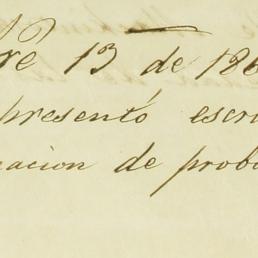 re 13 de 186
presentó escri
nacion de proba